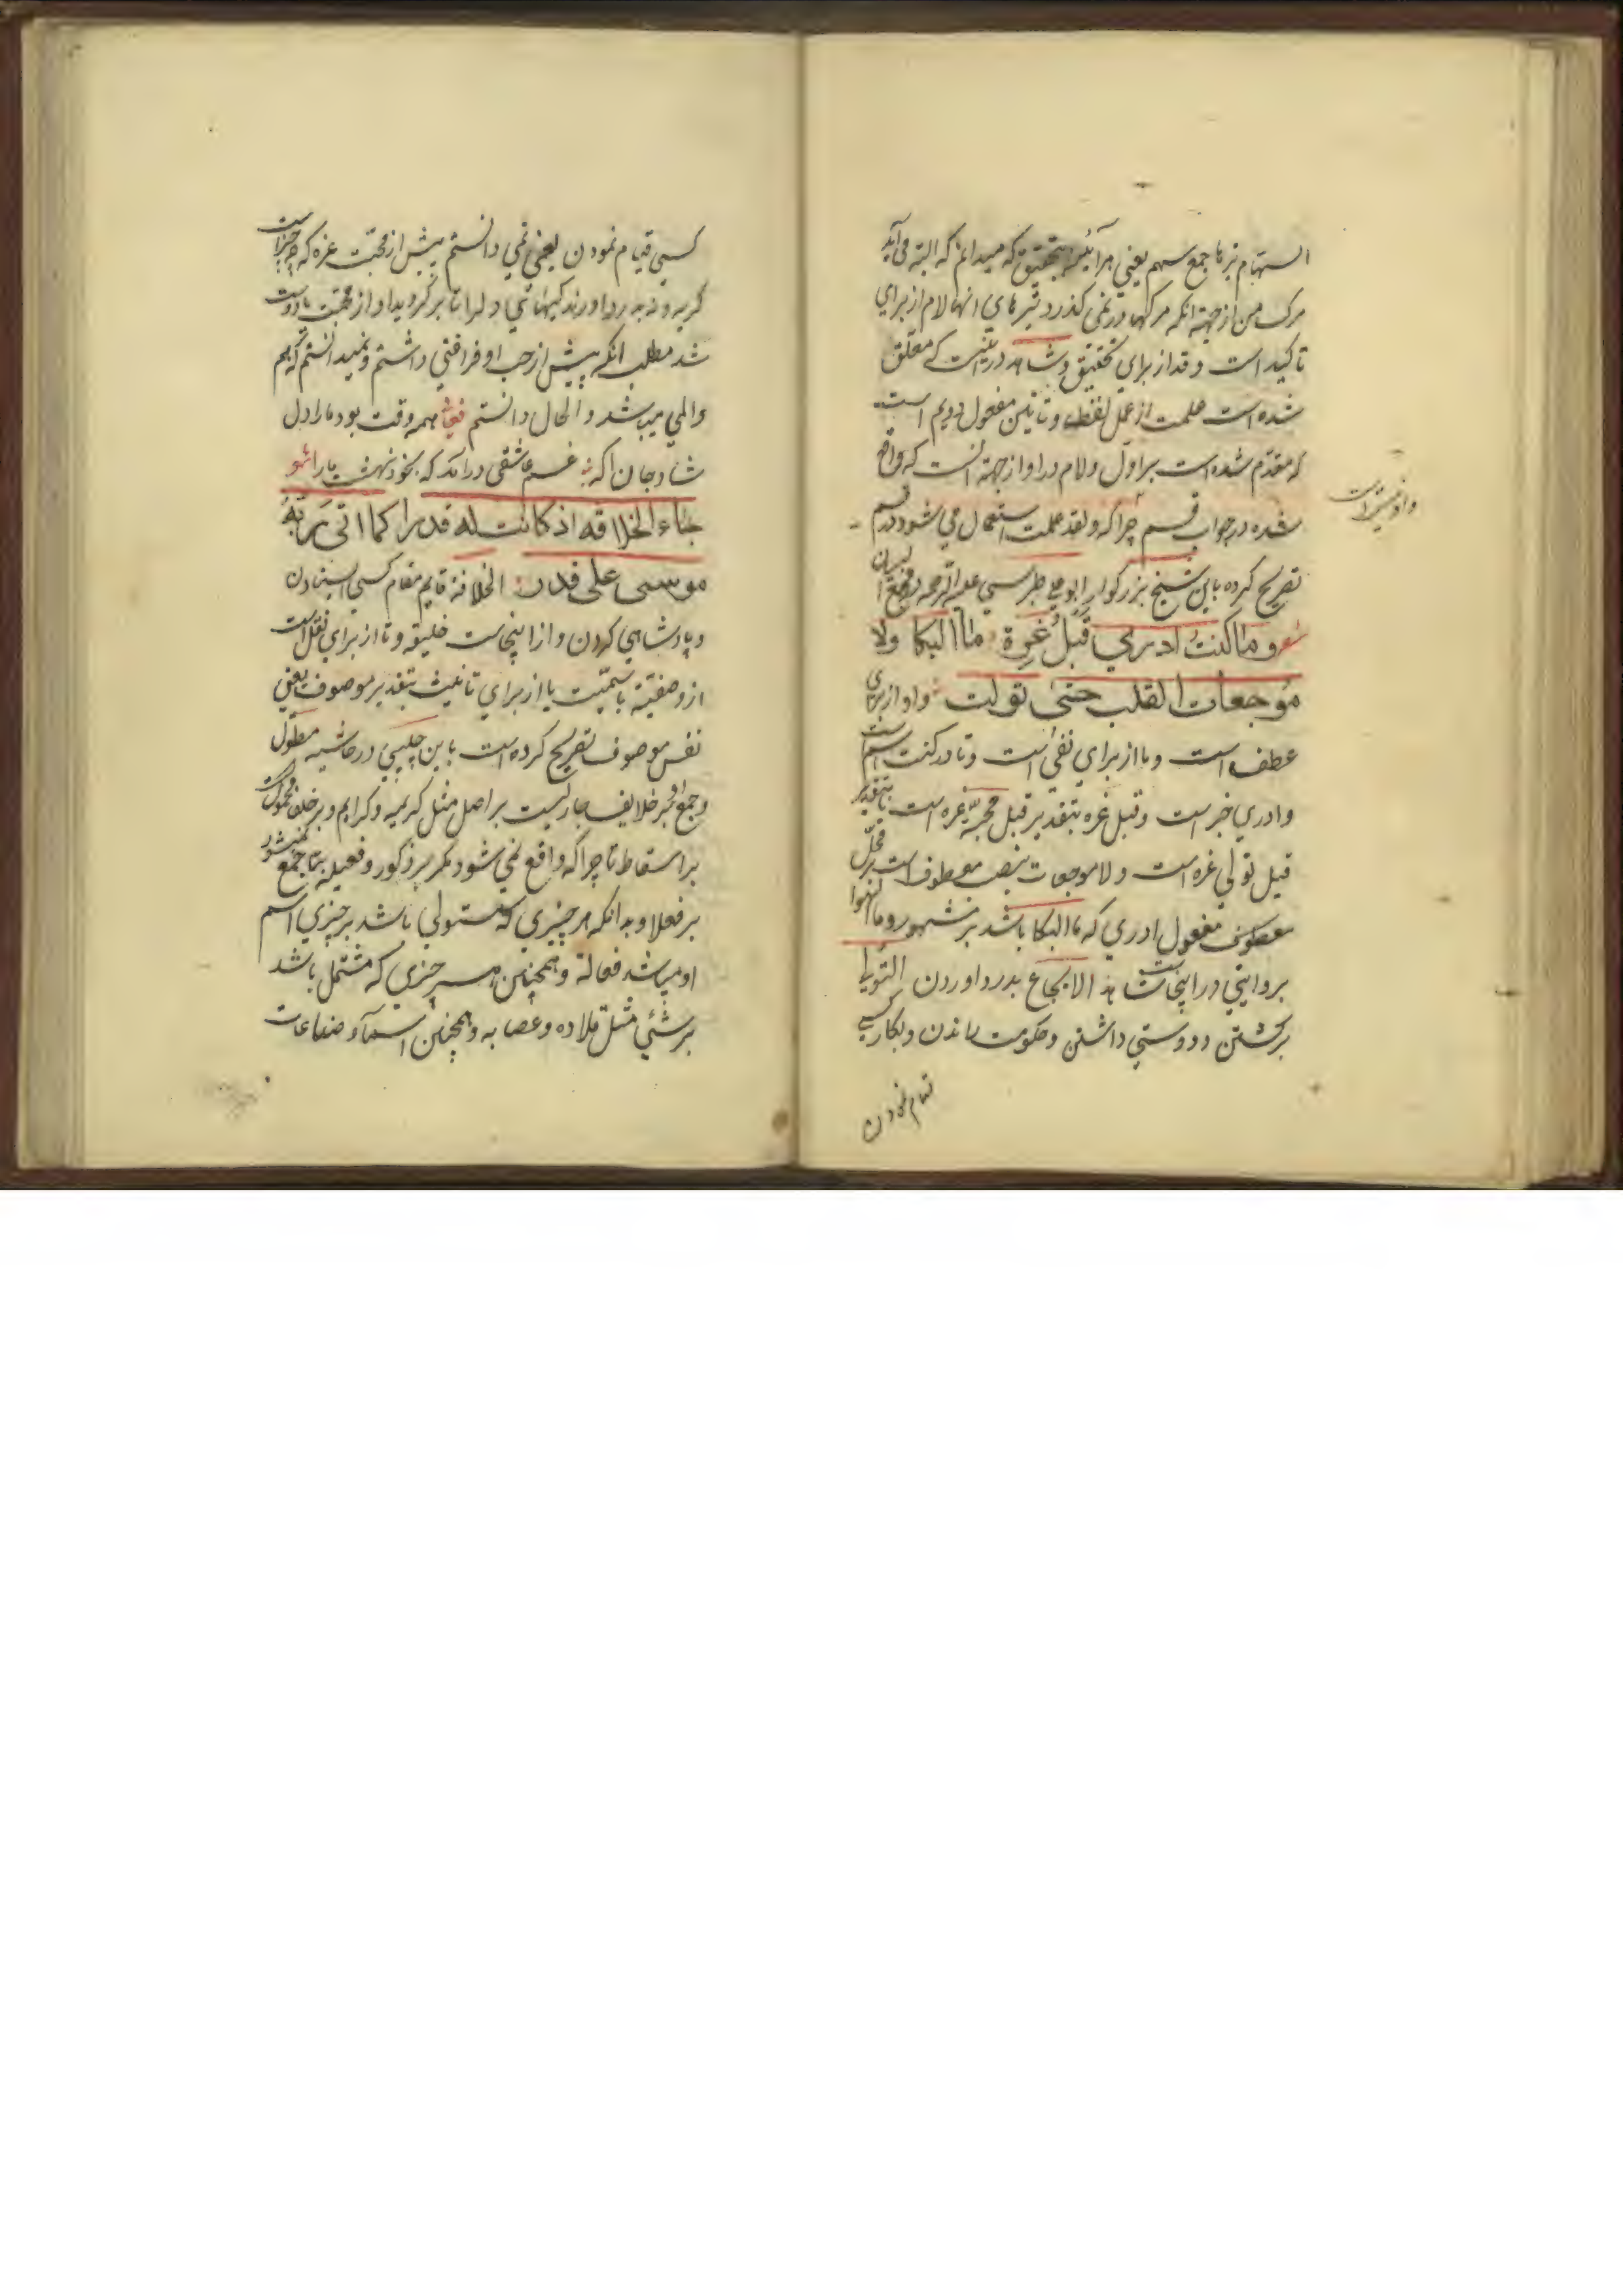 السهام تیرها جمع سهم یعنی هرآینه بتحقیق که میدانم که البته می آید
مرک من از جهته انکه مرکها در نمی کذرد تیرهای انها لام از برای
تاکید است و قد از برای تحقیق و شاهد در اینست که معلق
شده است علمت از عمل لفظا و تا تین مفعول دویم است
که مقدم شده است بر اول و لام در او از جهته انست که واقع
شده در جواب قسم چراکه و لقد علمت استعمال می شود در قسم
تصریح کرده باین شیخ بزرکوار ابو علی طبرسی علیه الرحمه در مجمع البیان
شعر و ما کنت ادری قبل عزة ما البکا ولا
موجعات القلب حتی تولت واو از برای
عطف است و ما از برای نفی است و تا در کنت اسم است
و ادری خبر است و قبل عزه بتقدیر قبل محبة عزه است یا بتقدیر
قبل تولی عزه است و لا موجعات بنصب معطوف است بر محل
معطوف مفعول ادری که ما البکا باشد بر مشهور و ما الهوا
بروایتی در اینجاست الایجاع بدرد اوردن التولی
برکشتن و دوستی داشتن و حکومت راندن و بکار کسی
قیام نمودن
کسی قیام نمودن یعنی نمی دانستم پیش از محبت عزه که چه چیز است
کریه و نه بدرد اورندکیهای دلرا تا برکردید او از محبت با دوست
شد مطلب انکه پیش از حب او فراغتی داشتم و نمیدانستم که هم
والمی میباشد و الحال دانستم همه وقت بود ما را دل
شاد جان اکه غم عاشقی درامد که بخود نهشت ما را شعر
جاء الخلافه اذ کانت له قدرا کما اتی ربه
موسی علی قدر الخلافة قایم مقام کسی ایستادن
و پادشاهی کردن و از اینجاست خلیفه و تا از برای نقل است
از وصفیته باسمیت یا از برای تانیث بتقدیر موصوف یعنی
نفس موصوف تصریح کرده است باین چلپی در حاشیه مطول
و جمع او بر خلایف جاریست بر اصل مثل کریمه و کرایم و بر خلفا محمولست
بر اسقاط تا چراکه واقع نمی شود مکر بر ذکور و فعیله بتا جمع نمیشود
بر فعلا و بدانکه هر چیزی که مستولی باشد بر چیزی اسم
او میباشد فعالة و همچنین هر چیزی که مشتمل باشد
بر شئی مثل قلاده و عصابه و همچنین اسماء صناعات